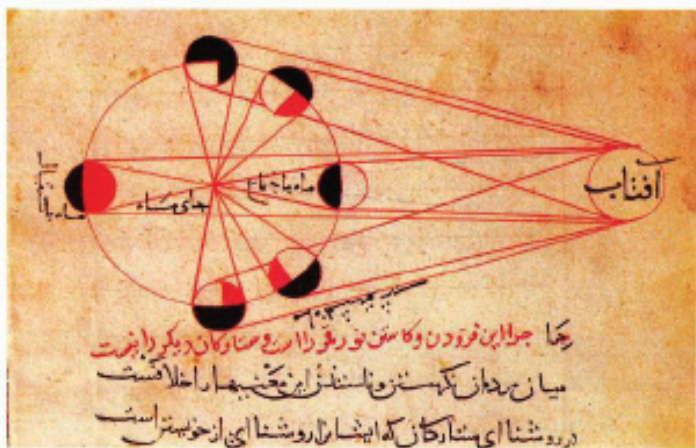 آفتاب
ماه باجتماع
جای ما
ماه باستقبال
چرا این فزودن و کاستن نور قمر را است و ستارکان دیکر را نیست
میان مردمان نکرستن و نا بستدن این معنیها را خلافست
در روشنائی ستارکان که ایشان را روشنائی از خویشتن است